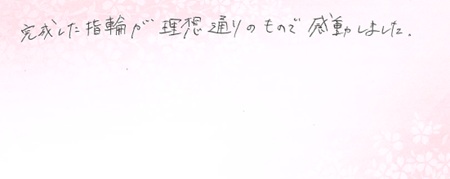 完成した指輪が理想通りのもので感動しました.